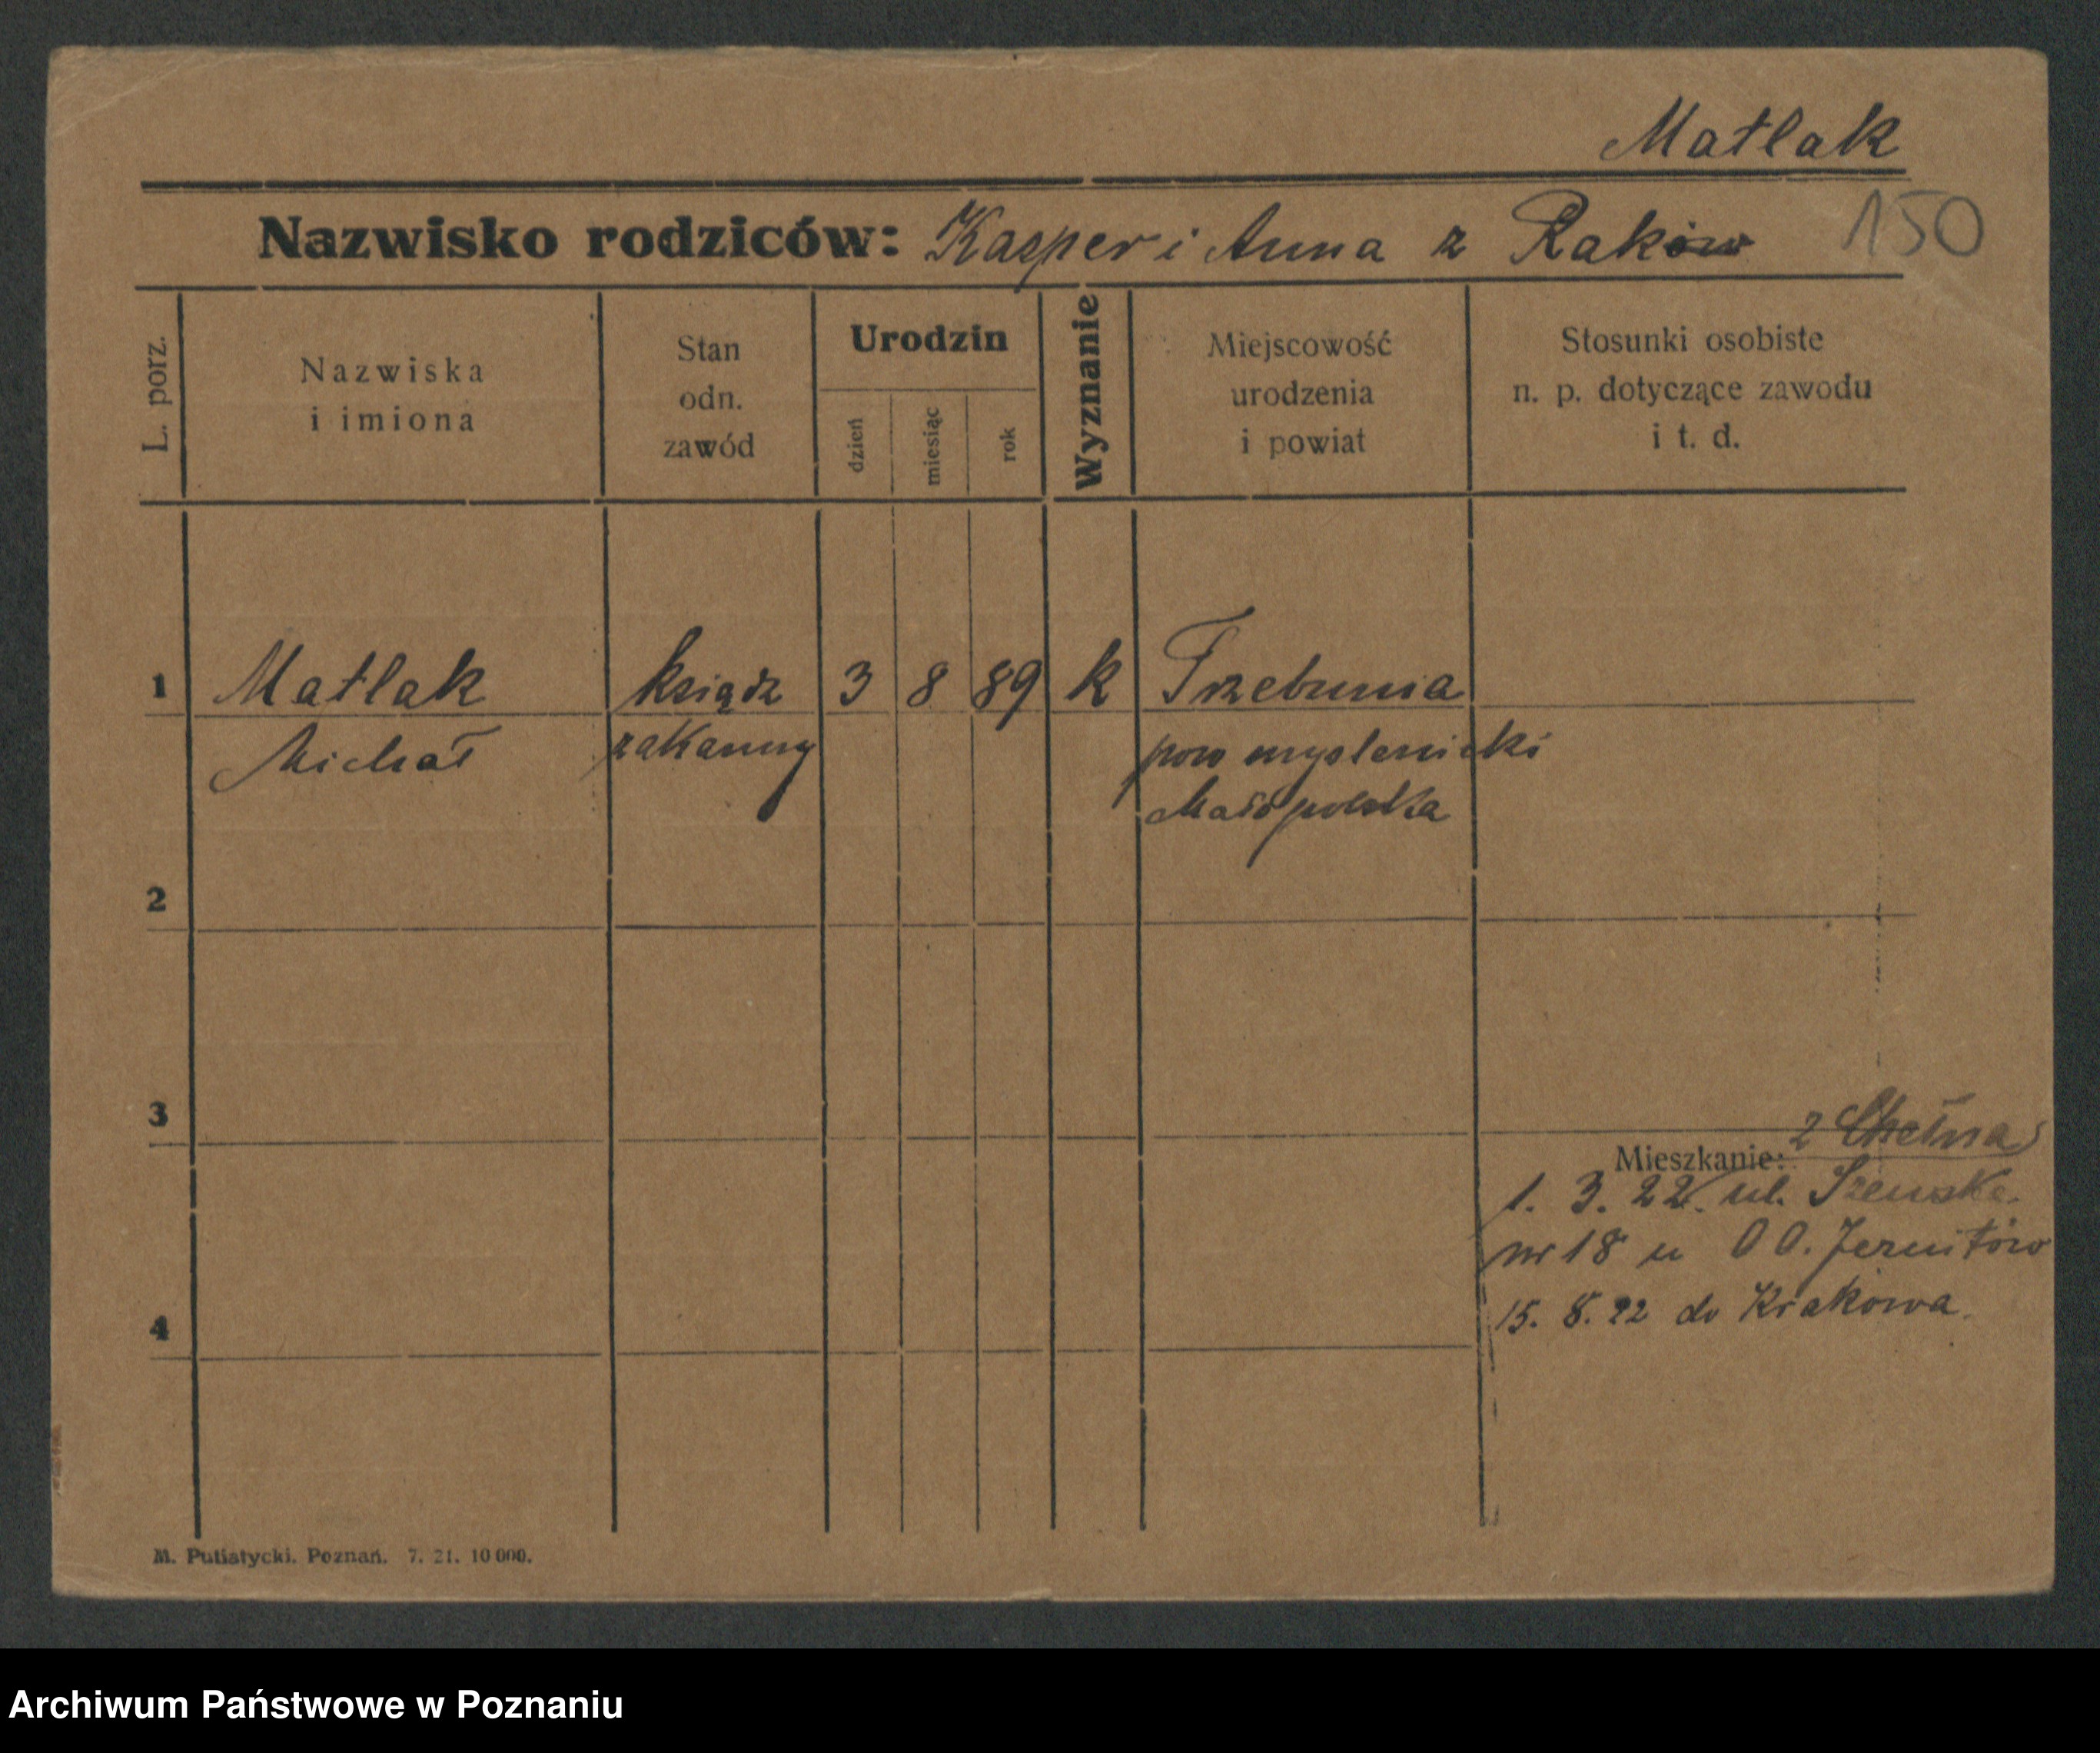 Matlak
Nazwisko rodziców: Kasper i Anna z Raków
150
L. porz.
Nazwiska
i imiona
Stan
odn.
zawód
Urodzin
dzień
miesiąc
rok
Wyznanie
Miejscowość
urodzenia
i powiat
Stosunki osobiste
n. p. dotyczące zawodu
i t. d.
1 Matlak ksiądz 3 8 89 k Trzebunia
Michał zakonny pow myslenicki
Małopolska
2
3
z Chełma
Mieszkanie:
1. 3. 22. ul.
nr 18 u OO. Jezuitów
15. 8. 22 do Krakowa.
4
M. Putiatycki. Poznań. 7. 21. 10 000.
Archiwum Państwowe w Poznaniu